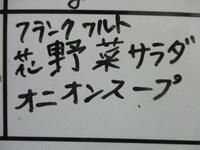 フランクフルト
花野菜サラダ
オニオンスープ